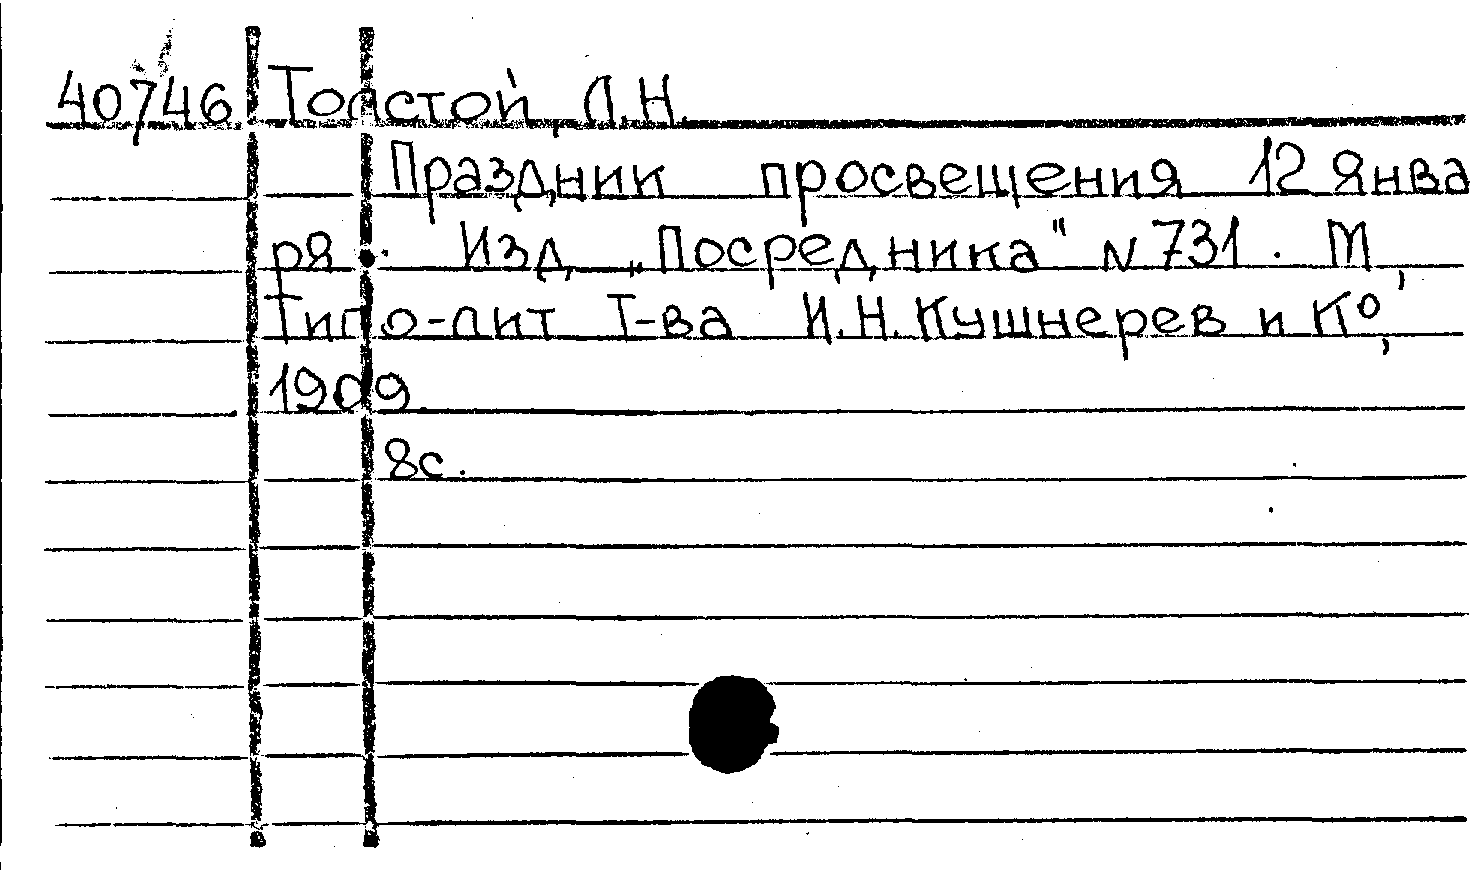 40746 Толстой, Л.Н.
Праздник просвещения 12 Янва
ря. Изд. „Посредника" N 731. М,
Типо-лит Т-ва И.Н.Кушнерев и К⁰,
1909
8с.